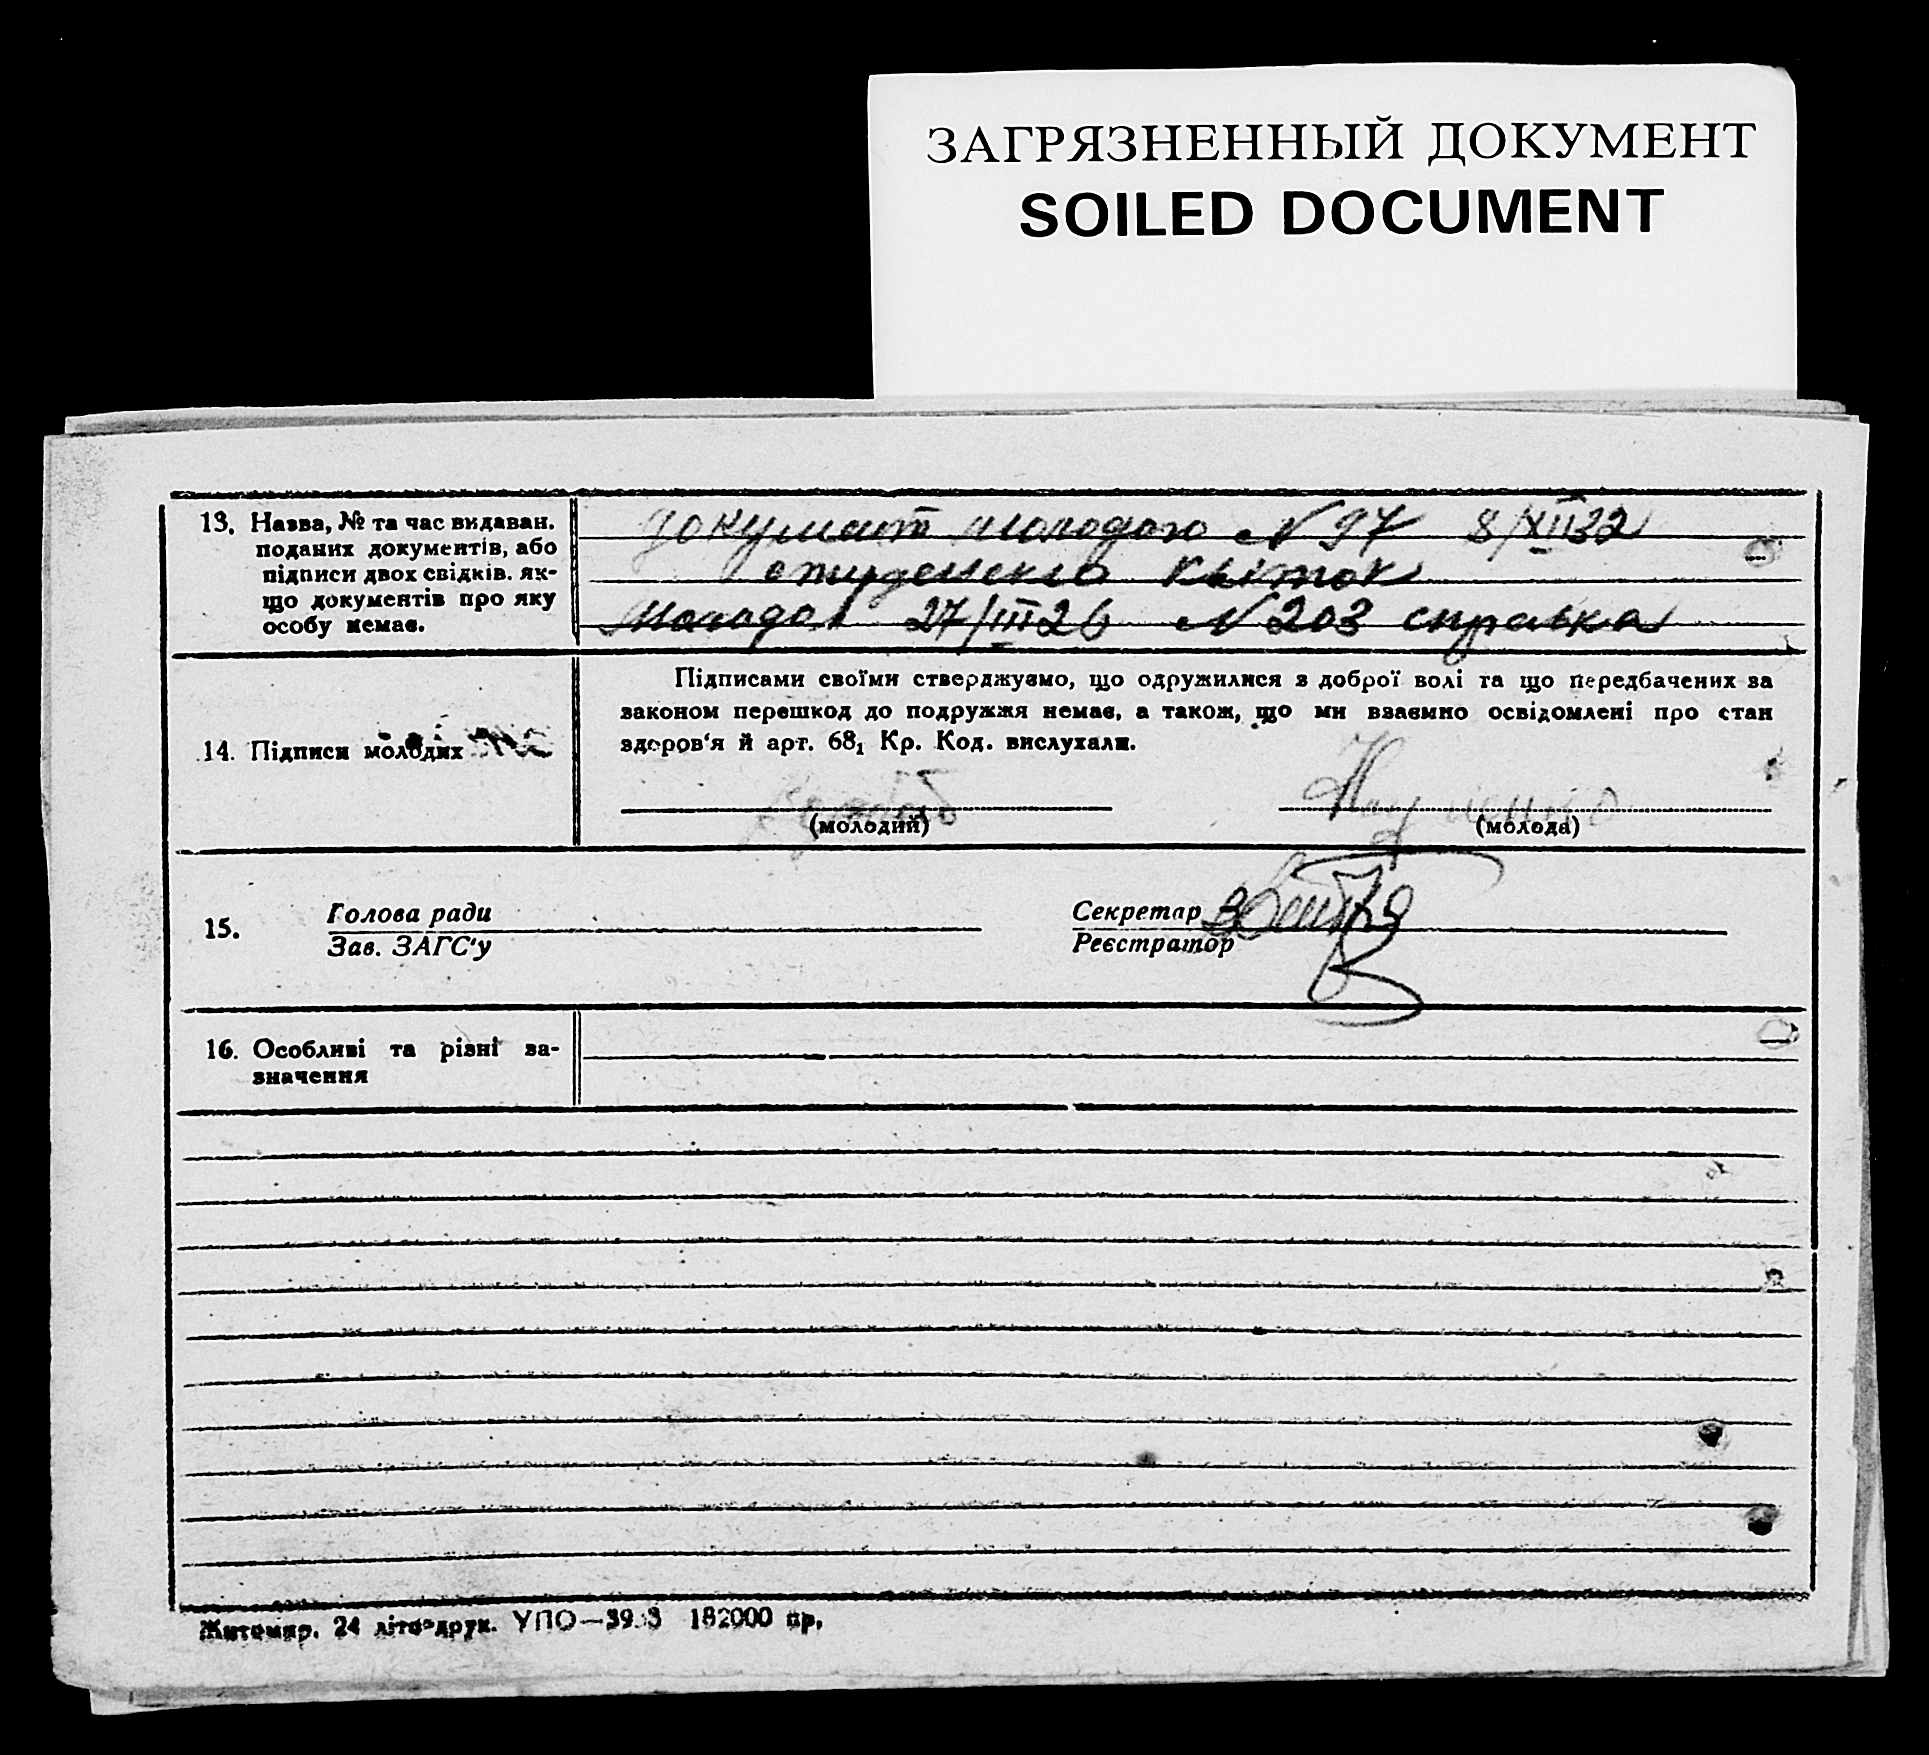 ЗАГРЯЗНЕННЫЙ ДОКУМЕНТ
SOILED DOCUMENT
13. Назва, № та час видаван.
поданих документів, або
підписи двох свідків. як-
що документів про яку
особу немає.
документ молодого N 97 8/XII 32
студенський квіток
Молодої 27/III 26 N 203 справка
14. Підписи молодих
Підписами своїми стверджуємо, що одружилися з доброї волі та що передбачених за
законом перешкод до подружжя немає, а також, що ми взаємно освідомлені про стан
здоров'я й арт. 68₁ Кр. Код. вислухали.
(молодий) (молода)
15. Голова ради
Зав. ЗАГС'у
Секретар
Реєстратор
16. Особливі та різні за-
значення
Житомир. 24 літо-друк. УПО— 182000 пр.